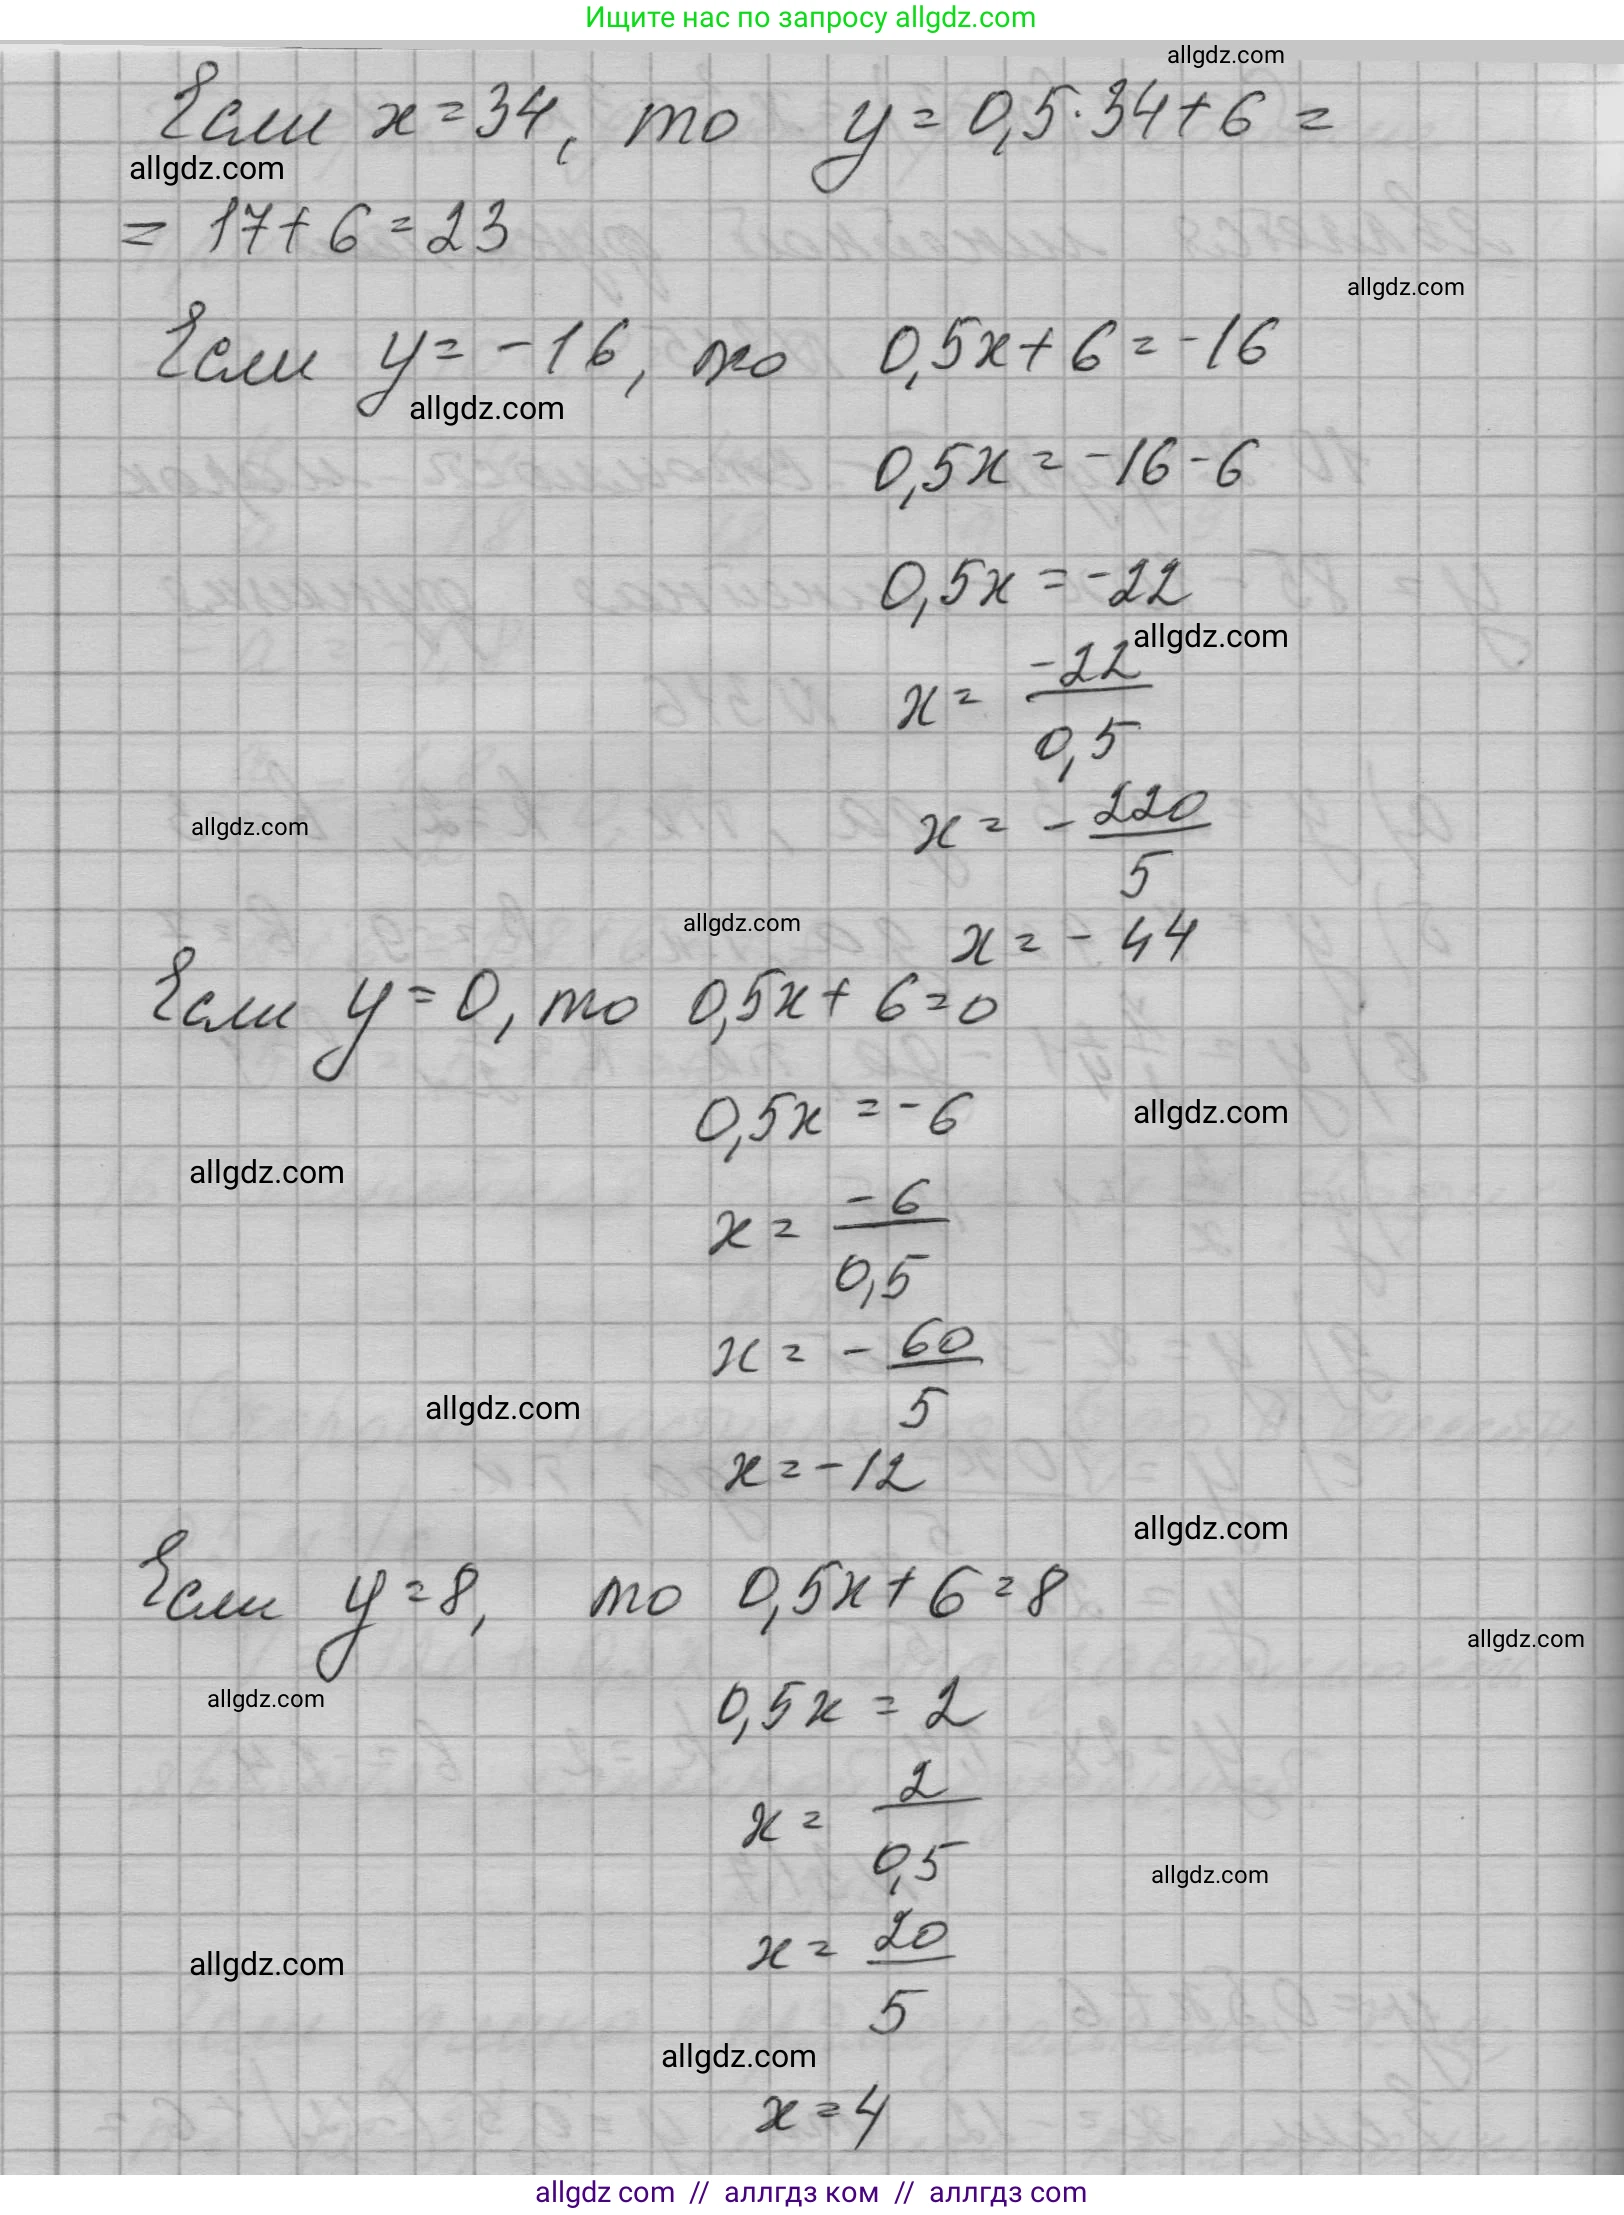 Ищите нас по запросу allgdz.com
allgdz.com
Если x=34, то y=0,5·34+6=
allgdz.com
=17+6=23
allgdz.com
Если y=-16, то 0,5x+6=-16
allgdz.com
0,5x=-16-6
0,5x=-22
allgdz.com
x=-22/0,5
allgdz.com
x=-220/5
allgdz.com
x=-44
Если y=0, то 0,5x+6=0
0,5x=-6
allgdz.com
allgdz.com
x=-6/0,5
x=-60/5
allgdz.com
x=-12
allgdz.com
Если y=8, то 0,5x+6=8
allgdz.com
allgdz.com
0,5x=2
x=2/0,5
allgdz.com
x=20/5
allgdz.com
allgdz.com
x=4
allgdz com // аллгдз ком // аллгдз com